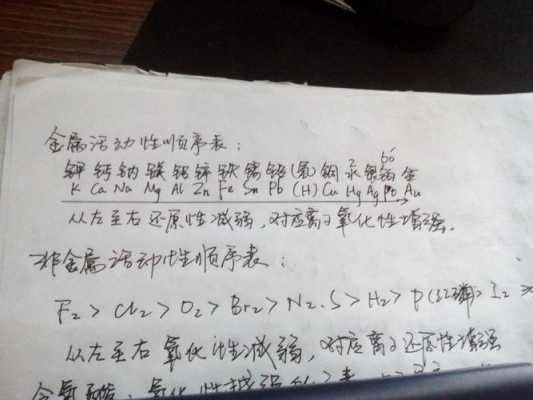 金属活动性顺序表：
bó
钾 钙 钠 镁 铝 锌 铁 锡 铅 (氢) 铜 汞 银 铂 金
K Ca Na Mg Al Zn Fe Sn Pb (H) Cu Hg Ag Pt Au
从左至右还原性减弱，对应离子氧化性增强。
非金属活动性顺序表：
F₂ > Cl₂ > O₂ > Br₂ > N₂.S > H₂ > P(红磷) > I₂ >
从左至右氧化性减弱，对应离子还原性增强